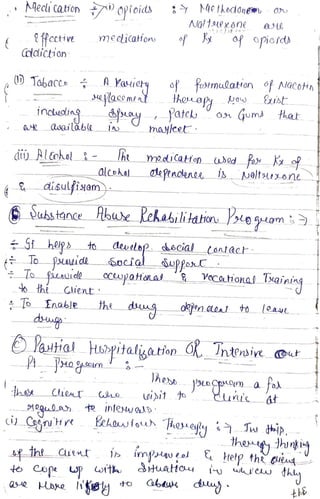 Medication :→ (i) opioids :→ Methadone or
Naltrexone are
Effective medication of Rx of opioids
addiction
(ii) Tobacco ÷ A Variety of formulation of Nacotin
replacement therapy now Exist
including spray, Patch or Gums that
are available in market.
(iii) Alcohol :- The medication used for Rx of
alcohol dependence is Naltrexone
& disulfiram
Substance Abuse Rehabilitation Program :→
÷ It helps to develop social contact.
÷ To provide social support.
÷ To provide occupational & Vocational Training
to the Client.
÷ To Enable the drug dependent to leave
drugs.
Partial Hospitalisation OR Intensive out
Pt program :-
These program a for
those client who visit to clinic at
regular intervals.
(i) Cognitive Behaviour Therapy :→ In this,
therapy thinking
of the client is improved & Help the client
to cope up with situation in which they
are More likely to abuse drug.